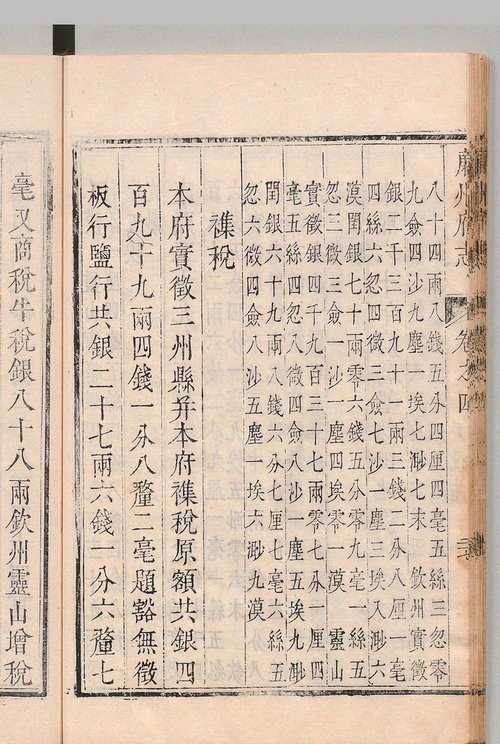 廉州府志 卷之四
八十四兩八錢五分四厘四毫五絲三忽零
九僉四沙九塵一埃七渺七末 欽州實徵
銀二千三百九十一兩三錢二分八厘一毫
四絲六忽四徵三僉七沙一塵三埃八渺六
漠閏銀七十兩零六錢五分零九毫一絲七
忽三微三僉一沙二塵四埃零一漠 靈山
實徵銀四千九百三十七兩零七分一厘四
毫五絲四忽八微四僉八沙一塵五埃九渺
閏銀六十九兩四錢六分七厘七毫六絲五
忽六微四僉八沙五塵一埃六渺九漠
襍稅
本府實徵三州縣并本府襍稅原額共銀四
百九十九兩四錢一分八釐二毫題豁無徵
板行鹽行共銀二十七兩六錢一分六釐七
毫又商稅牛稅銀八十八兩欽州靈山增稅